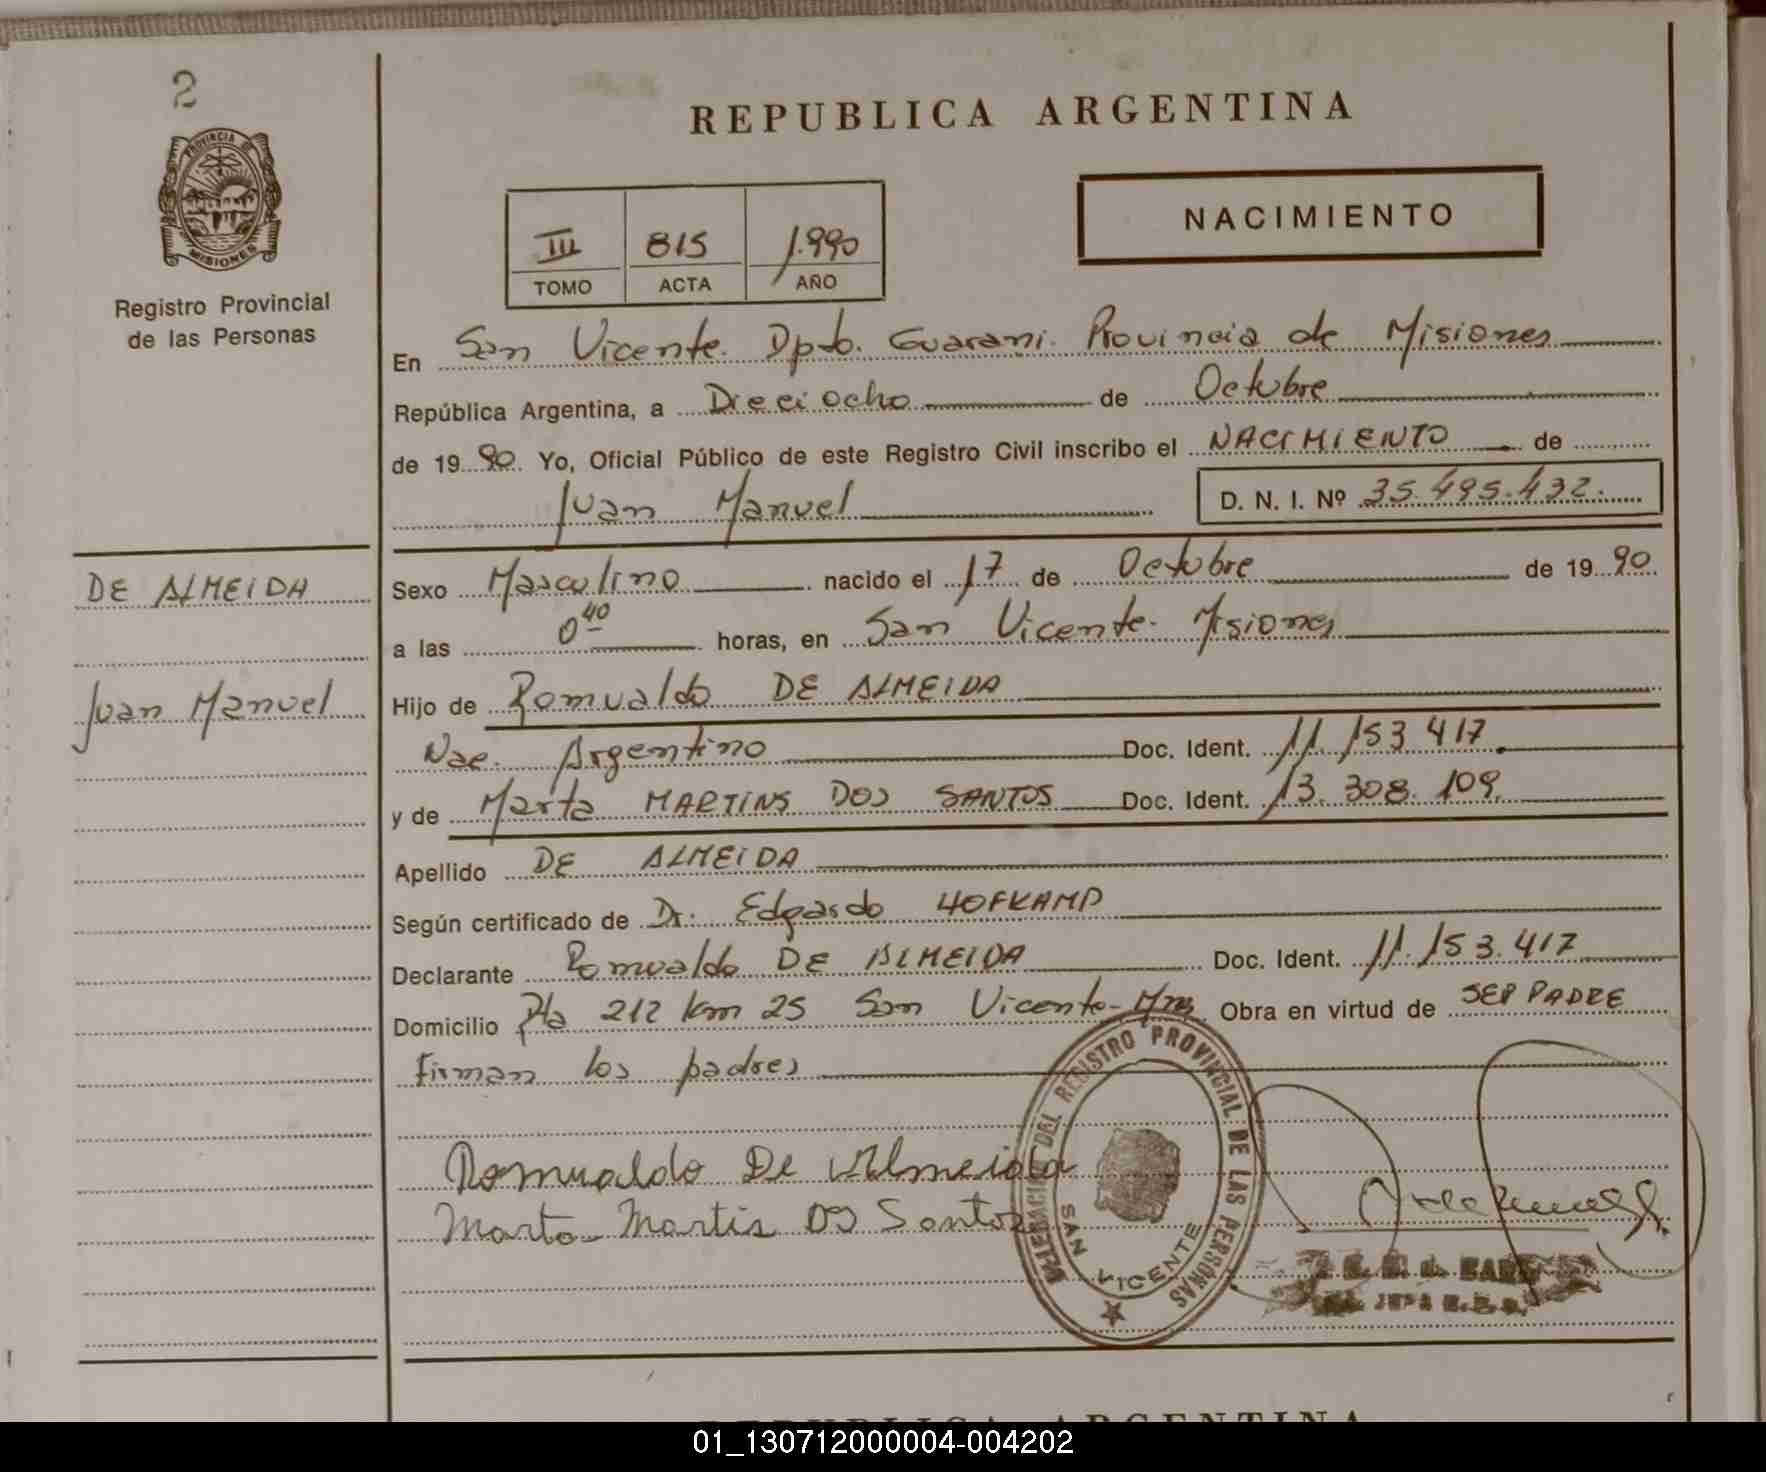 2
PROVINCIA DE
MISIONES
Registro Provincial
de las Personas
REPUBLICA ARGENTINA
NACIMIENTO
III 815 1.990
TOMO ACTA AÑO
En San Vicente. Dpto. Guarani. Provincia de Misiones
República Argentina, a Dieciocho de Octubre
de 19 90. Yo, Oficial Público de este Registro Civil inscribo el NACIMIENTO de
Juan Manuel D. N. I. Nº 35.495.432.
DE ALMEIDA
Juan Manuel
Sexo Masculino nacido el 17 de Octubre de 19 90.
a las 0 40 horas, en San Vicente- Misiones
Hijo de Romualdo DE ALMEIDA
Nac. Argentino Doc. Ident. 11.153.417.
y de Marta MARTINS DOS SANTOS Doc. Ident. 13.308.109.
Apellido DE ALMEIDA
Según certificado de Dr: Edgardo HOFKAMP
Declarante Romualdo DE ALMEIDA Doc. Ident. 11.153.417
Domicilio Pta 212 Km 25 San Vicente-Mnes Obra en virtud de SER PADRE
Firman los padres
Romualdo De Almeida
Marta Martis DS Santos
DELEGACION DAL REGISTRO PROVINCIAL DE LAS PERSONAS
SAN VICENTE
REPUBLICA ARGENTINA
01_130712000004-004202